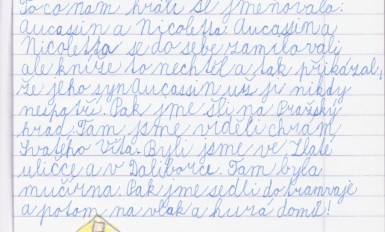 To co nám hráli se jmenovalo:
Aucassin a Nicoletta. Aucassin a
Nicoletta se do sebe zamilovali
ale kníže to nechtěl a tak přikázal,
že jeho syn Aucassin už ji nikdy
nespatří. Pak jsme šli na Pražský
hrad. Tam jsme viděli chrám
Svatého Víta. Byli jsme ve Zlaté
uličce a v Daliborce. Tam byla
mučírna. Pak jsme sedli do tramvaje
a potom na vlak a hurá domů!